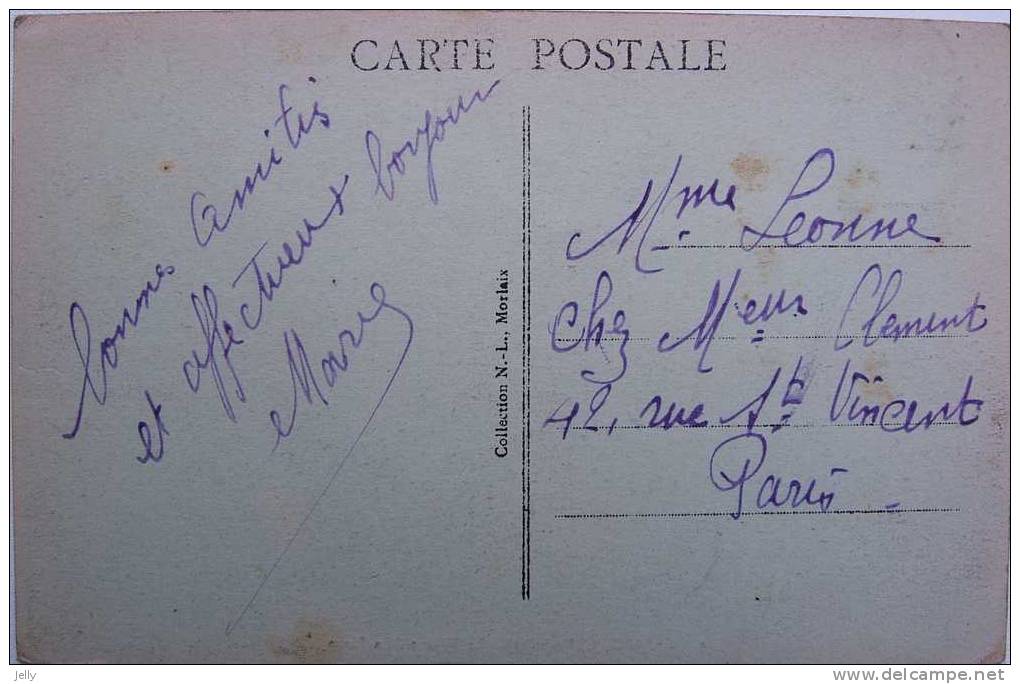 CARTE POSTALE
bonnes amitiés
et affectueux bonjour
Marie
Collection N.-L., Morlaix
Mme Leonne
chez Meur Clement
42, rue St Vincent
Paris -
jelly
www.delcampe.net